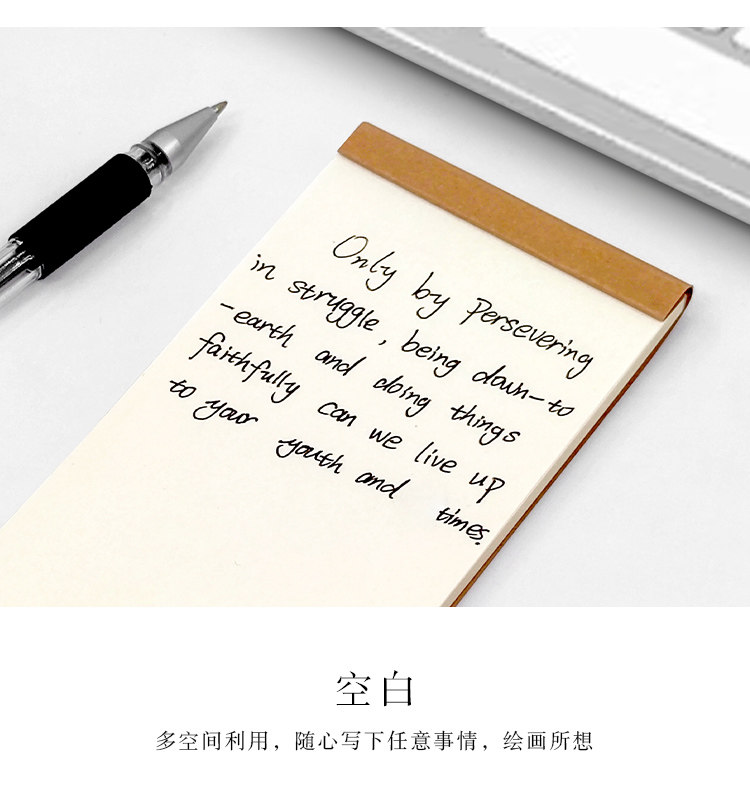 Only by Persevering
in struggle, being down-to
-earth and doing things
faithfully can we live up
to your youth and times.
空白
多空间利用，随心写下任意事情，绘画所想